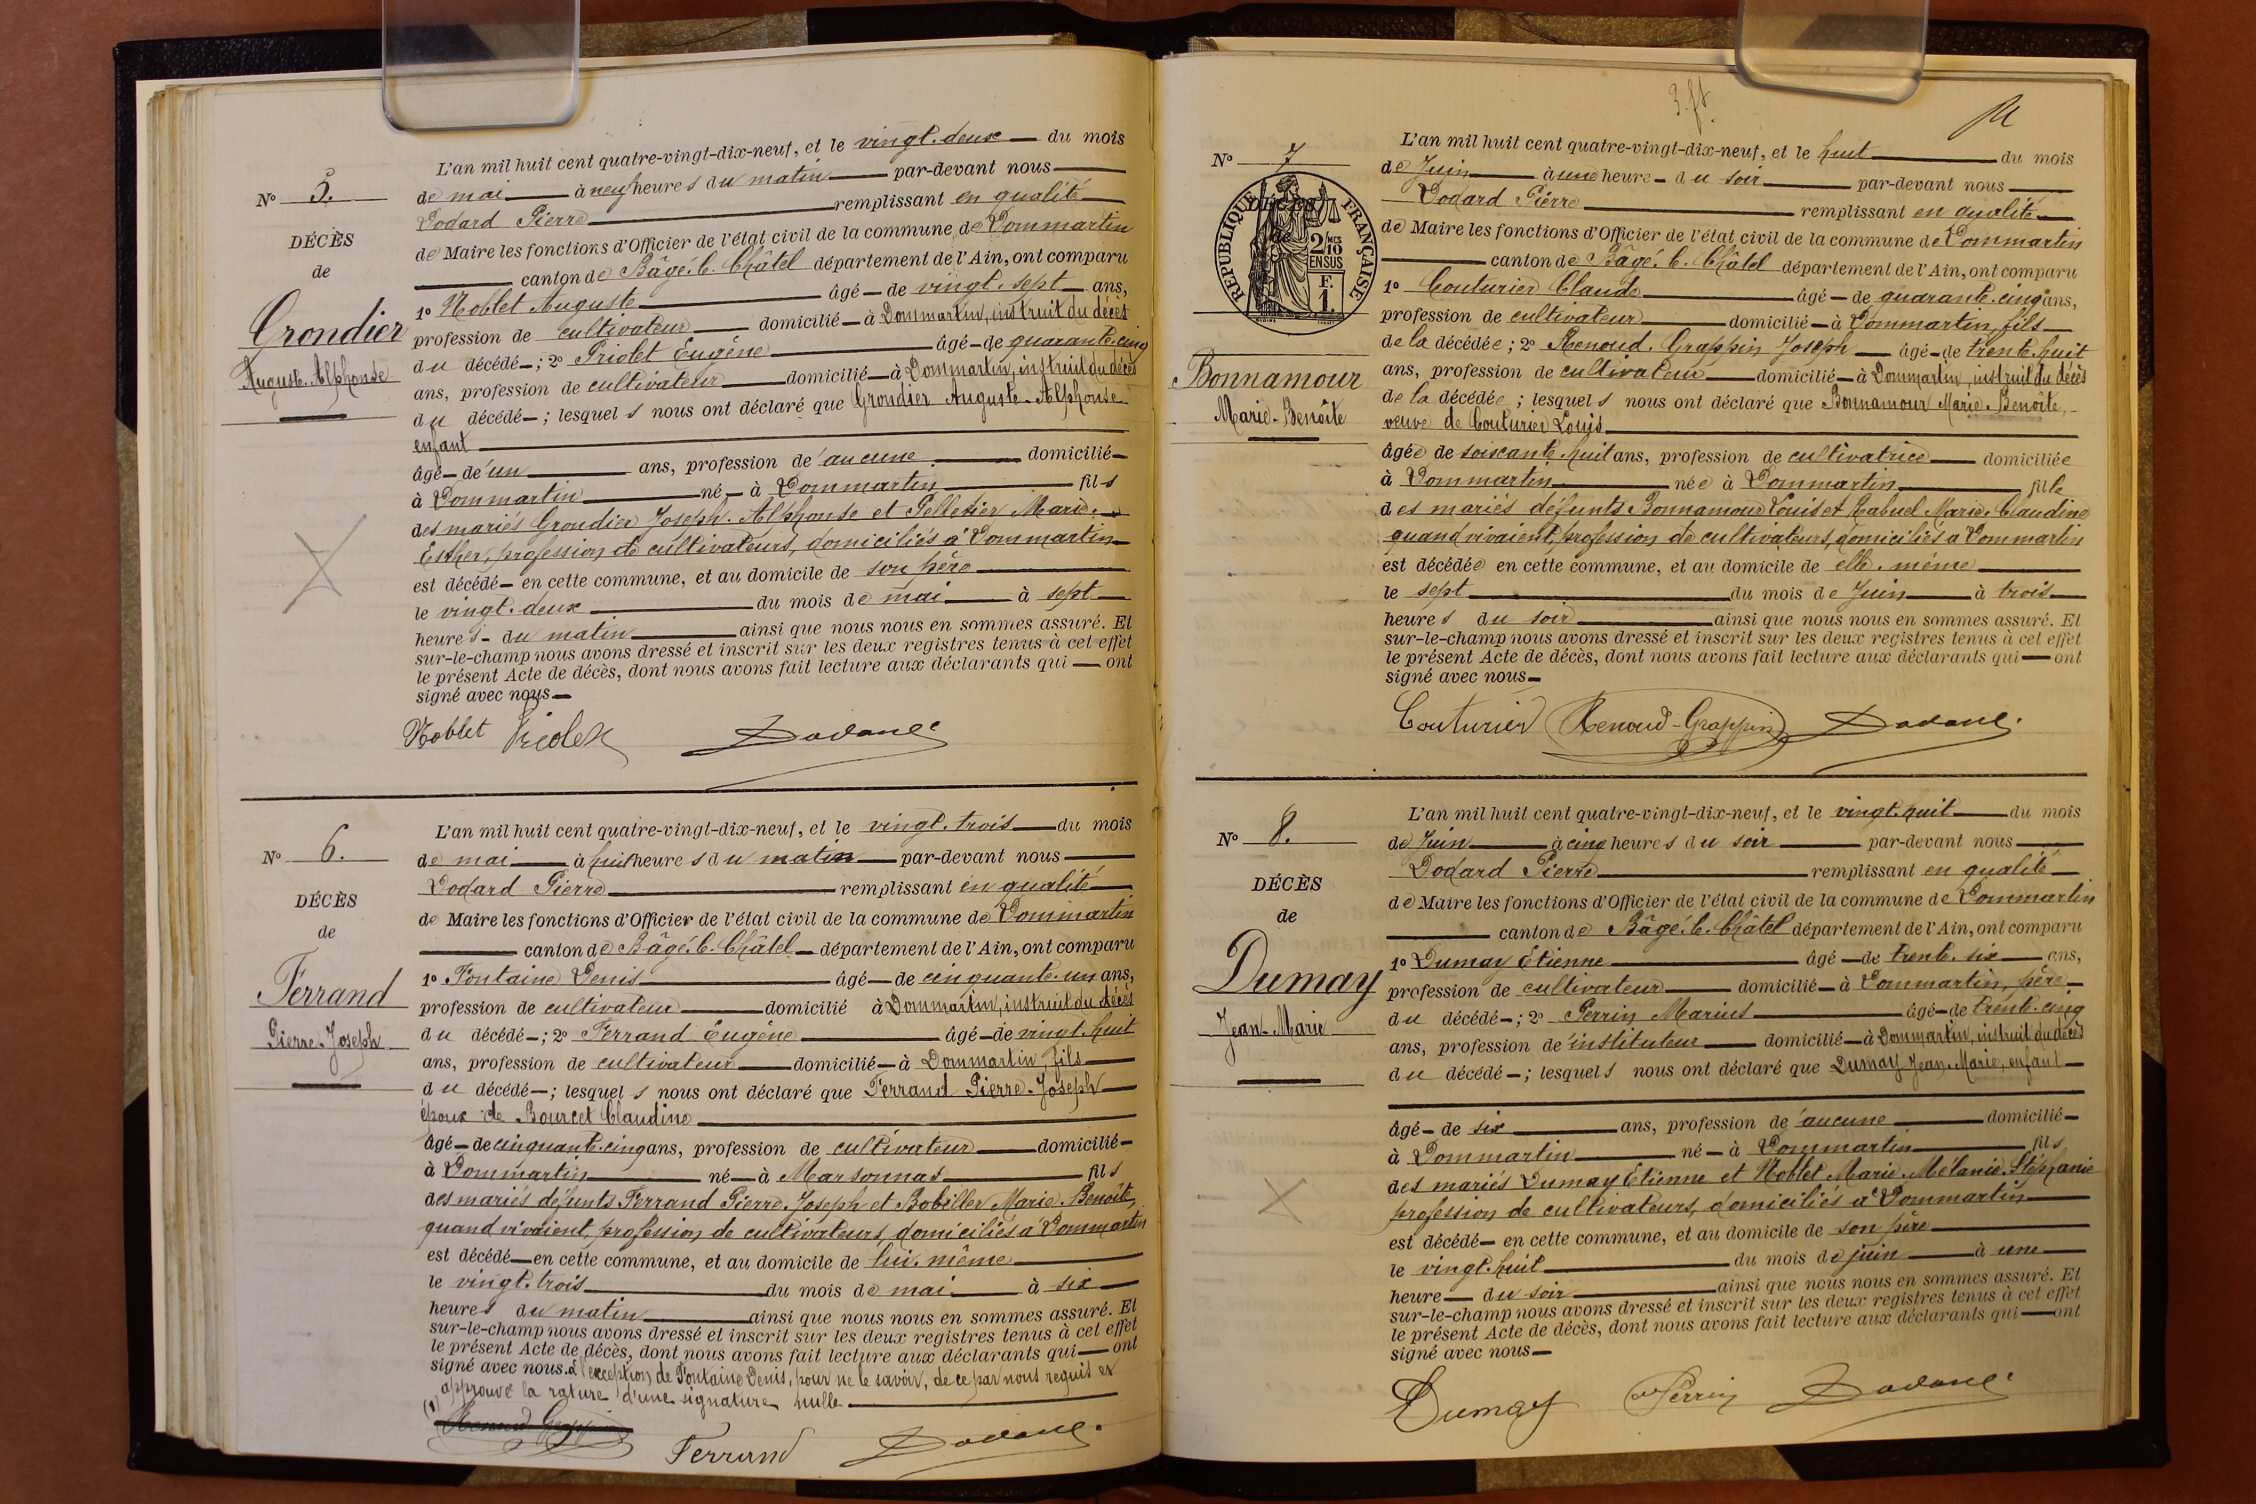 N° 5.
DÉCÈS
de
Grondier
Auguste-Alphonse
L'an mil huit cent quatre-vingt-dix-neuf, et le vingt-deux du mois
de mai à neuf heures du matin par-devant nous
Dodard Pierre remplissant en qualité
de Maire les fonctions d'Officier de l'état civil de la commune de Dommartin
canton de Bâgé-l.-Châtel département de l'Ain, ont comparu
1° Noblet Auguste âgé de vingt-sept ans,
profession de cultivateur domicilié à Dommartin, instruit du décès
du décédé; 2° Priolet Eugène âgé de quarante-cinq
ans, profession de cultivateur domicilié à Dommartin, instruit du décès
du décédé; lesquels nous ont déclaré que Grondier Auguste-Alphonse
enfant
âgé d'un ans, profession de aucune domicilié
à Dommartin né à Dommartin fils
des mariés Grondier Joseph-Alphonse et Pelletier Marie-
Esther, profession de cultivateurs, domiciliés à Dommartin
est décédé en cette commune, et au domicile de son père
le vingt-deux du mois de mai à sept
heures du matin ainsi que nous nous en sommes assuré. Et
sur-le-champ nous avons dressé et inscrit sur les deux registres tenus à cet effet
le présent Acte de décès, dont nous avons fait lecture aux déclarants qui ont
signé avec nous
Noblet Priolet Dodard
N° 6.
DÉCÈS
de
Ferrand
Pierre-Joseph
L'an mil huit cent quatre-vingt-dix-neuf, et le vingt-trois du mois
de mai à huit heures du matin par-devant nous
Dodard Pierre remplissant en qualité
de Maire les fonctions d'Officier de l'état civil de la commune de Dommartin
canton de Bâgé-l.-Châtel département de l'Ain, ont comparu
1° Fontaine Denis âgé de cinquante-un ans,
profession de cultivateur domicilié à Dommartin, instruit du décès
du décédé; 2° Ferrand Eugène âgé de vingt-huit
ans, profession de cultivateur domicilié à Dommartin, fils
du décédé; lesquels nous ont déclaré que Ferrand Pierre-Joseph
époux de Bourcet Claudine
âgé de cinquante-cinq ans, profession de cultivateur domicilié
à Dommartin né à Marsonnas fils
des mariés défunts Ferrand Pierre-Joseph et Bobiller Marie-Benoîte,
quand vivaient, profession de cultivateurs, domiciliés à Dommartin
est décédé en cette commune, et au domicile de lui-même
le vingt-trois du mois de mai à six
heures du matin ainsi que nous nous en sommes assuré. Et
sur-le-champ nous avons dressé et inscrit sur les deux registres tenus à cet effet
le présent Acte de décès, dont nous avons fait lecture aux déclarants qui ont
signé avec nous à l'exception de Fontaine Denis, pour ne le savoir, de ce par nous requis et
approuvé la rature d'une signature nulle
(1) Renoud Grappin
Ferrand Dodard
3. ft
N° 7
RÉPUBLIQUE FRANÇAISE
2/10 MES
EN SUS
F. 1.
Bonnamour
Marie-Benoîte
L'an mil huit cent quatre-vingt-dix-neuf, et le huit du mois
de Juin à une heure du soir par-devant nous
Dodard Pierre remplissant en qualité
de Maire les fonctions d'Officier de l'état civil de la commune de Dommartin
canton de Bâgé-l.-Châtel département de l'Ain, ont comparu
1° Couturier Claude âgé de quarante-cinq ans,
profession de cultivateur domicilié à Dommartin, fils
de la décédée; 2° Renoud-Grappin Joseph âgé de trente-huit
ans, profession de cultivateur domicilié à Dommartin, instruit du décès
de la décédée; lesquels nous ont déclaré que Bonnamour Marie-Benoîte,
veuve de Couturier Louis
âgée de soixante-huit ans, profession de cultivatrice domiciliée
à Dommartin née à Dommartin fille
des mariés défunts Bonnamour Louis et Rabuel Marie-Claudine
quand vivaient, profession de cultivateurs, domiciliés à Dommartin
est décédée en cette commune, et au domicile de elle-même
le sept du mois de Juin à trois
heures du soir ainsi que nous nous en sommes assuré. Et
sur-le-champ nous avons dressé et inscrit sur les deux registres tenus à cet effet
le présent Acte de décès, dont nous avons fait lecture aux déclarants qui ont
signé avec nous
Couturier Renoud-Grappin Dodard
N° 8.
DÉCÈS
de
Dumay
Jean-Marie
L'an mil huit cent quatre-vingt-dix-neuf, et le vingt-huit du mois
de Juin à cinq heures du soir par-devant nous
Dodard Pierre remplissant en qualité
de Maire les fonctions d'Officier de l'état civil de la commune de Dommartin
canton de Bâgé-l.-Châtel département de l'Ain, ont comparu
1° Dumay Étienne âgé de trente-six ans,
profession de cultivateur domicilié à Dommartin, père
du décédé; 2° Perrin Marius âgé de trente-cinq
ans, profession de instituteur domicilié à Dommartin, instruit du décès
du décédé; lesquels nous ont déclaré que Dumay Jean-Marie, enfant
âgé de six ans, profession de aucune domicilié
à Dommartin né à Dommartin fils
des mariés Dumay Étienne et Noblet Marie-Mélanie-Stéphanie
profession de cultivateurs, domiciliés à Dommartin
est décédé en cette commune, et au domicile de son père
le vingt-huit du mois de juin à une
heure du soir ainsi que nous nous en sommes assuré. Et
sur-le-champ nous avons dressé et inscrit sur les deux registres tenus à cet effet
le présent Acte de décès, dont nous avons fait lecture aux déclarants qui ont
signé avec nous
Dumay Perrin Dodard